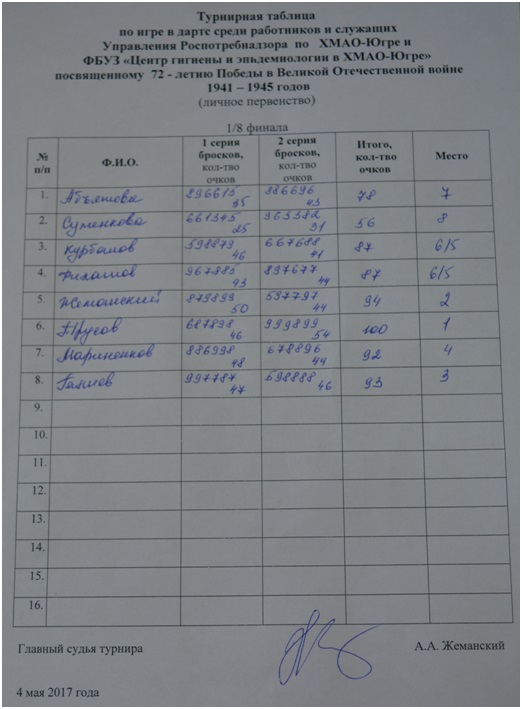 Турнирная таблица
по игре в дартс среди работников и служащих
Управления Роспотребнадзора по ХМАО-Югре и
ФБУЗ «Центр гигиены и эпидемиологии в ХМАО-Югре»
посвященному 72 - летию Победы в Великой Отечественной войне
1941 – 1945 годов
(личное первенство)
1/8 финала
№ п/п Ф.И.О. 1 серия бросков, кол-тво очков 2 серия бросков, кол-тво очков Итого, кол-тво очков Место
1. 296615 35 886696 43 78 7
2. Суменкова 661345 25 963382 31 56 8
3. Курбанов 598879 46 667688 41 87 6/5
4. 967885 43 897677 44 87 6/5
5. Жеманский 879899 50 597797 44 94 2
6. Трусов 687898 46 999899 54 100 1
7. Мариненков 886998 48 678896 44 92 4
8. 997787 47 698888 46 93 3
9.
10.
11.
12.
13.
14.
15.
16.
Главный судья турнира А.А. Жеманский
4 мая 2017 года